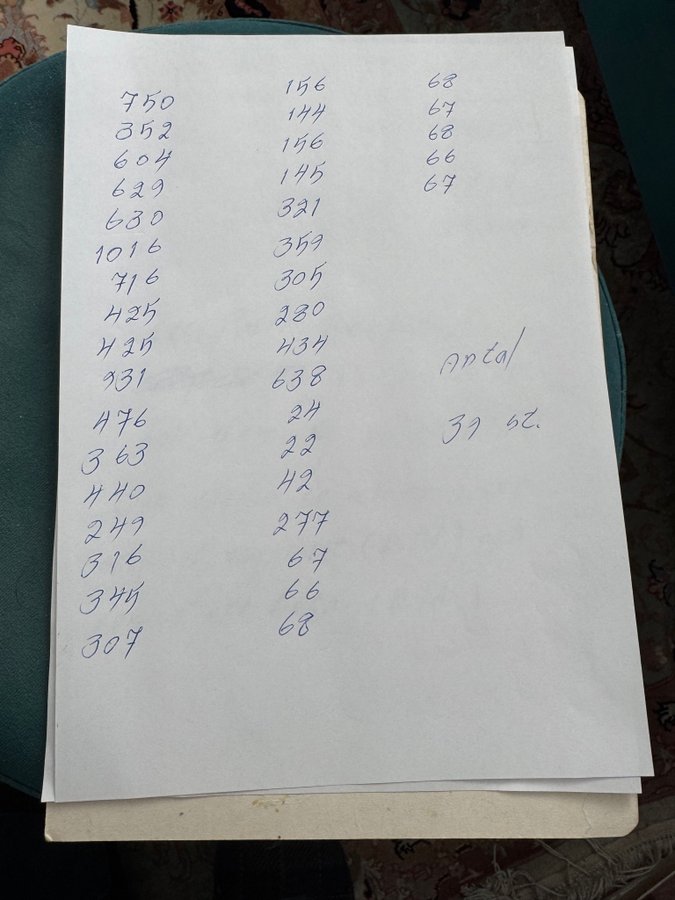 750
352
604
629
630
1016
716
425
425
931
476
363
440
249
316
345
307
156
144
156
145
321
359
305
280
434
638
24
22
42
277
67
66
68
68
67
68
66
67
Antal
39 st.